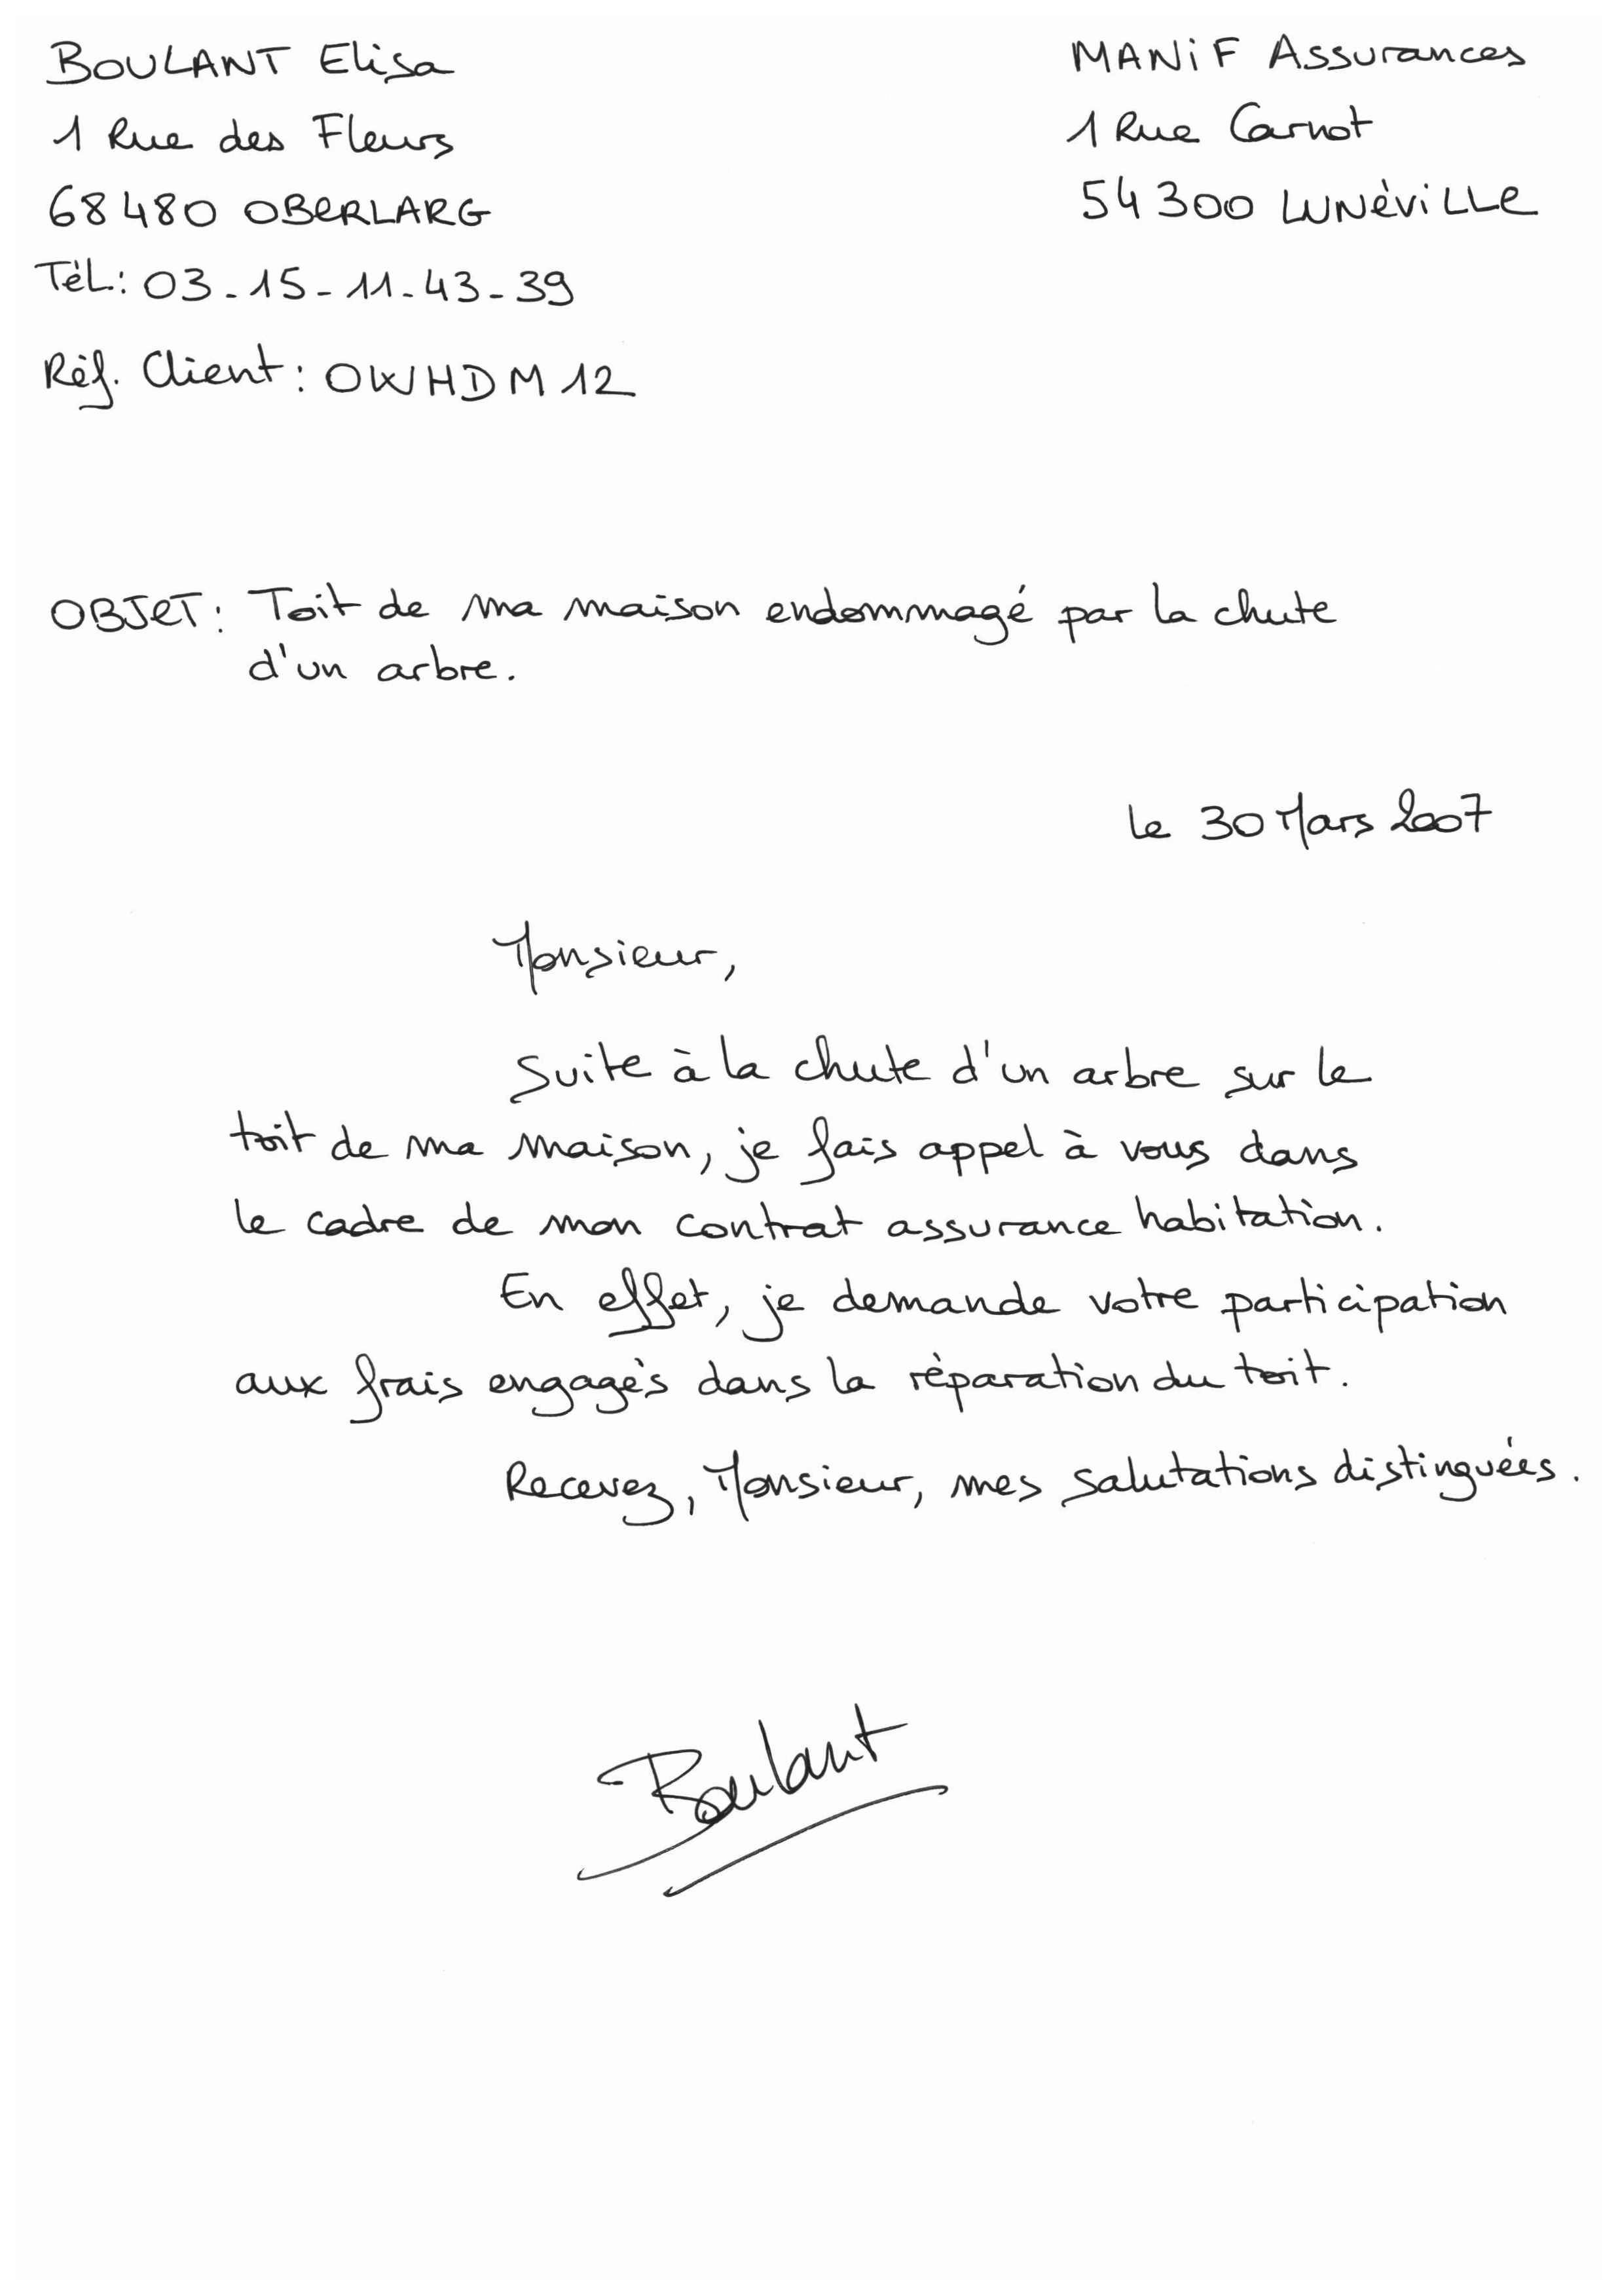 BOULANT Elisa
1 Rue des Fleurs
68480 OBERLARG
Tél.: 03-15-11-43-39
Réf. Client: OWHDM12
MANiF Assurances
1 Rue Carnot
54300 LUNéViLLe
OBJeT: Toit de ma maison endommagé par la chute
d'un arbre.
le 30 Mars 2007
Monsieur,
Suite à la chute d'un arbre sur le
toit de ma maison, je fais appel à vous dans
le cadre de mon contrat assurance habitation.
En effet, je demande votre participation
aux frais engagés dans la réparation du toit.
Recevez, Monsieur, mes salutations distinguées.
Boulant